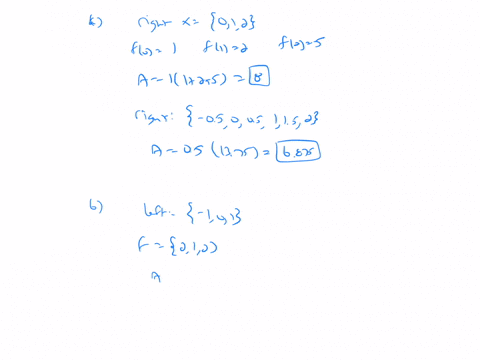 a) right x = {0,1,2}
f(0)= 1 f(1)=2 f(2)=5
A = 1(1+2+5) = 8
right: {-0.5, 0, 0.5, 1, 1.5, 2}
A = 0.5 (13.75) = 6.875
b) left: {-1, 0, 1}
f = {2, 1, 2}
A